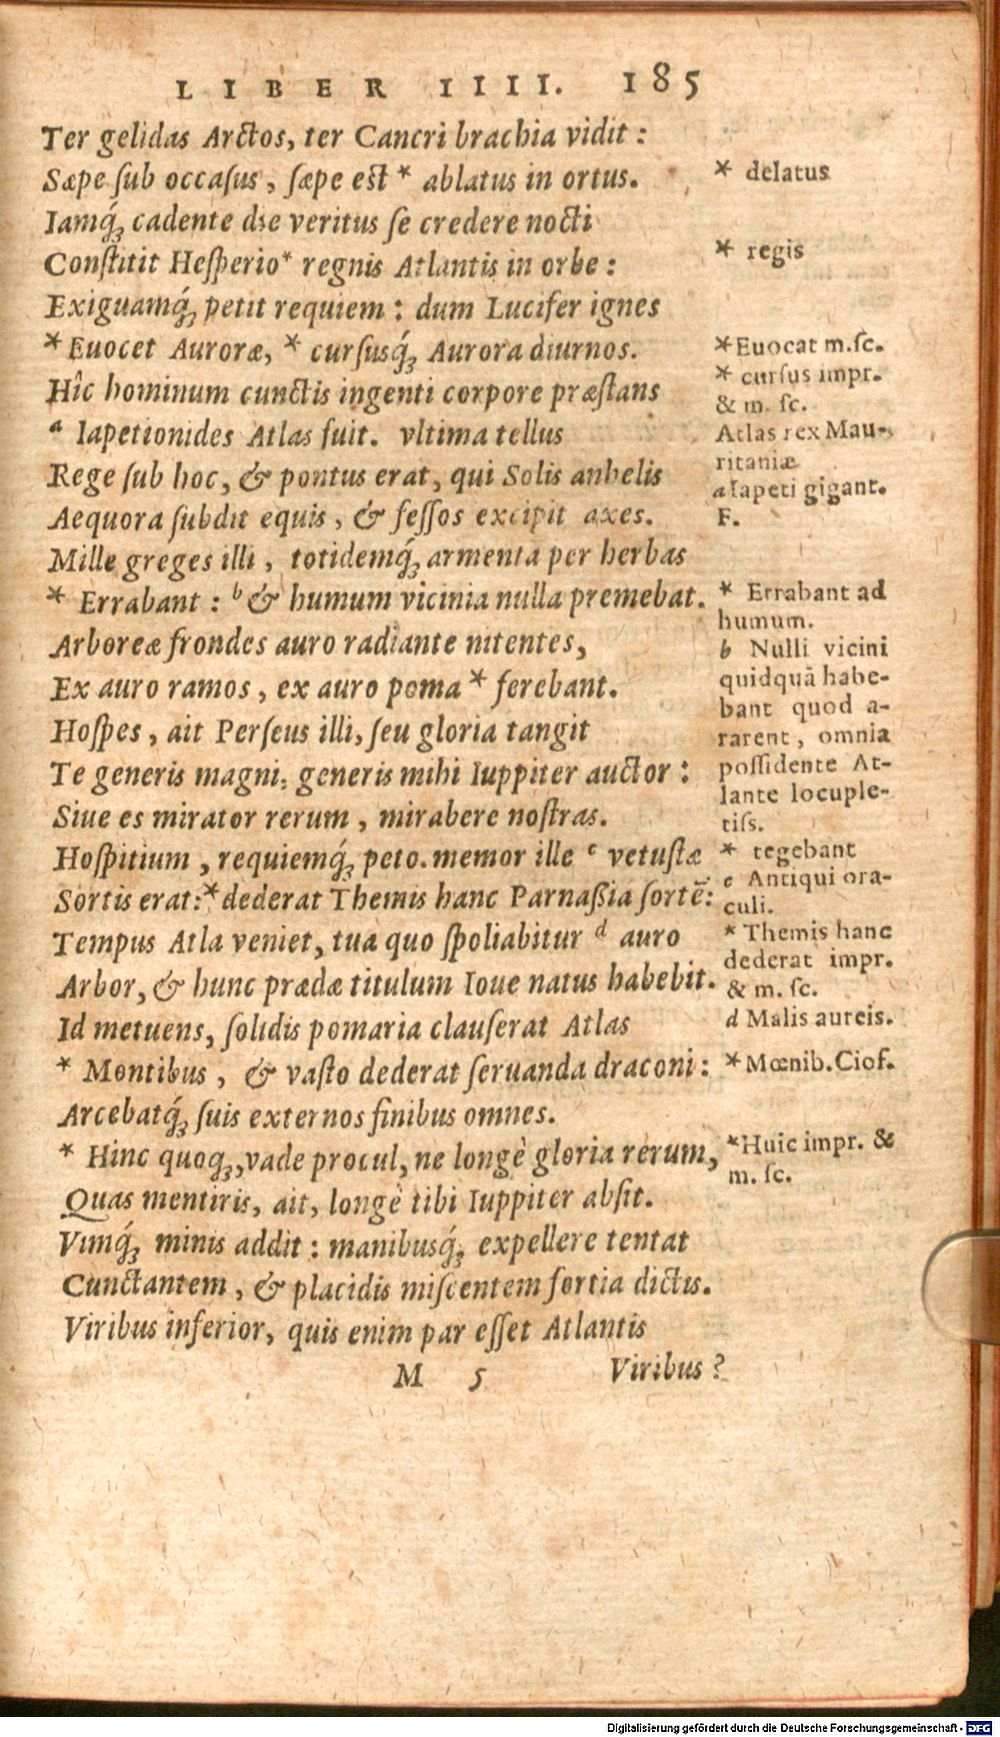 LIBER IIII. 185
Ter gelidas Arctos, ter Cancri brachia vidit :
Sæpe ſub occaſus, ſæpe est * ablatus in ortus.
* delatus
Iamq́ꝫ cadente die veritus ſe credere nocti
Conſtitit Heſperio * regnis Atlantis in orbe :
* regis
Exiguamq́ꝫ petit requiem : dum Lucifer ignes
* Euocet Auroræ, * curſusq́ꝫ Aurora diurnos.
*Euocat m.ſc.
* curſus impr.
& m. ſc.
Hîc hominum cunctis ingenti corpore præſtans
a Iapetionides Atlas fuit. vltima tellus
Atlas rex Mau-
ritaniæ
Rege ſub hoc, & pontus erat, qui Solis anhelis
a Iapeti gigant.
F.
Aequora ſubdit equis, & feſſos excipit axes.
Mille greges illi, totidemq́ꝫ armenta per herbas
* Errabant : b & humum vicinia nulla premebat.
* Errabant ad
humum.
Arboreæ frondes auro radiante nitentes,
b Nulli vicini
quidquã habe-
bant quod a-
rarent, omnia
poſſidente At-
lante locuple-
tiſs.
Ex auro ramos, ex auro poma * ferebant.
Hoſpes, ait Perſeus illi, ſeu gloria tangit
Te generis magni, generis mihi Iuppiter auctor :
Siue es mirator rerum, mirabere noſtras.
Hoſpitium, requiemq́ꝫ peto. memor ille c vetuſtæ
* tegebant
c Antiqui ora-
culi.
Sortis erat: * dederat Themis hanc Parnaſſia ſortē:
* Themis hanc
dederat impr.
& m. ſc.
Tempus Atla veniet, tua quo ſpoliabitur d auro
Arbor, & hunc prædæ titulum Ioue natus habebit.
d Malis aureis.
Id metuens, ſolidis pomaria clauſerat Atlas
* Montibus, & vaſto dederat ſeruanda draconi :
*Mœnib.Cioſ.
Arcebatq́ꝫ ſuis externos finibus omnes.
* Hinc quoqꝫ, vade procul, ne longè gloria rerum,
*Huic impr. &
m. ſc.
Quas mentiris, ait, longè tibi Iuppiter abſit.
Vimq́ꝫ minis addit : manibusq́ꝫ expellere tentat
Cunctantem, & placidis miſcentem fortia dictis.
Viribus inferior, quis enim par eſſet Atlantis
M 5 Viribus ?
Digitalisierung gefördert durch die Deutsche Forschungsgemeinschaft - DFG